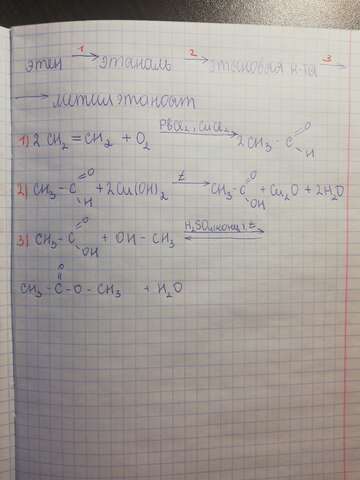 этен 1→ этаналь 2→ этановая к-та 3
→ метилэтаноат
1) 2CH2=CH2 + O2 PbCl2, CuCl2→ 2CH3-C=O-H
2) CH3-C=O-H + 2Cu(OH)2 t→ CH3-C=O-OH + Cu2O + 2H2O
3) CH3-C=O-OH + OH-CH3 H2SO4(конц), t⇄
CH3-C(=O)-O-CH3 + H2O